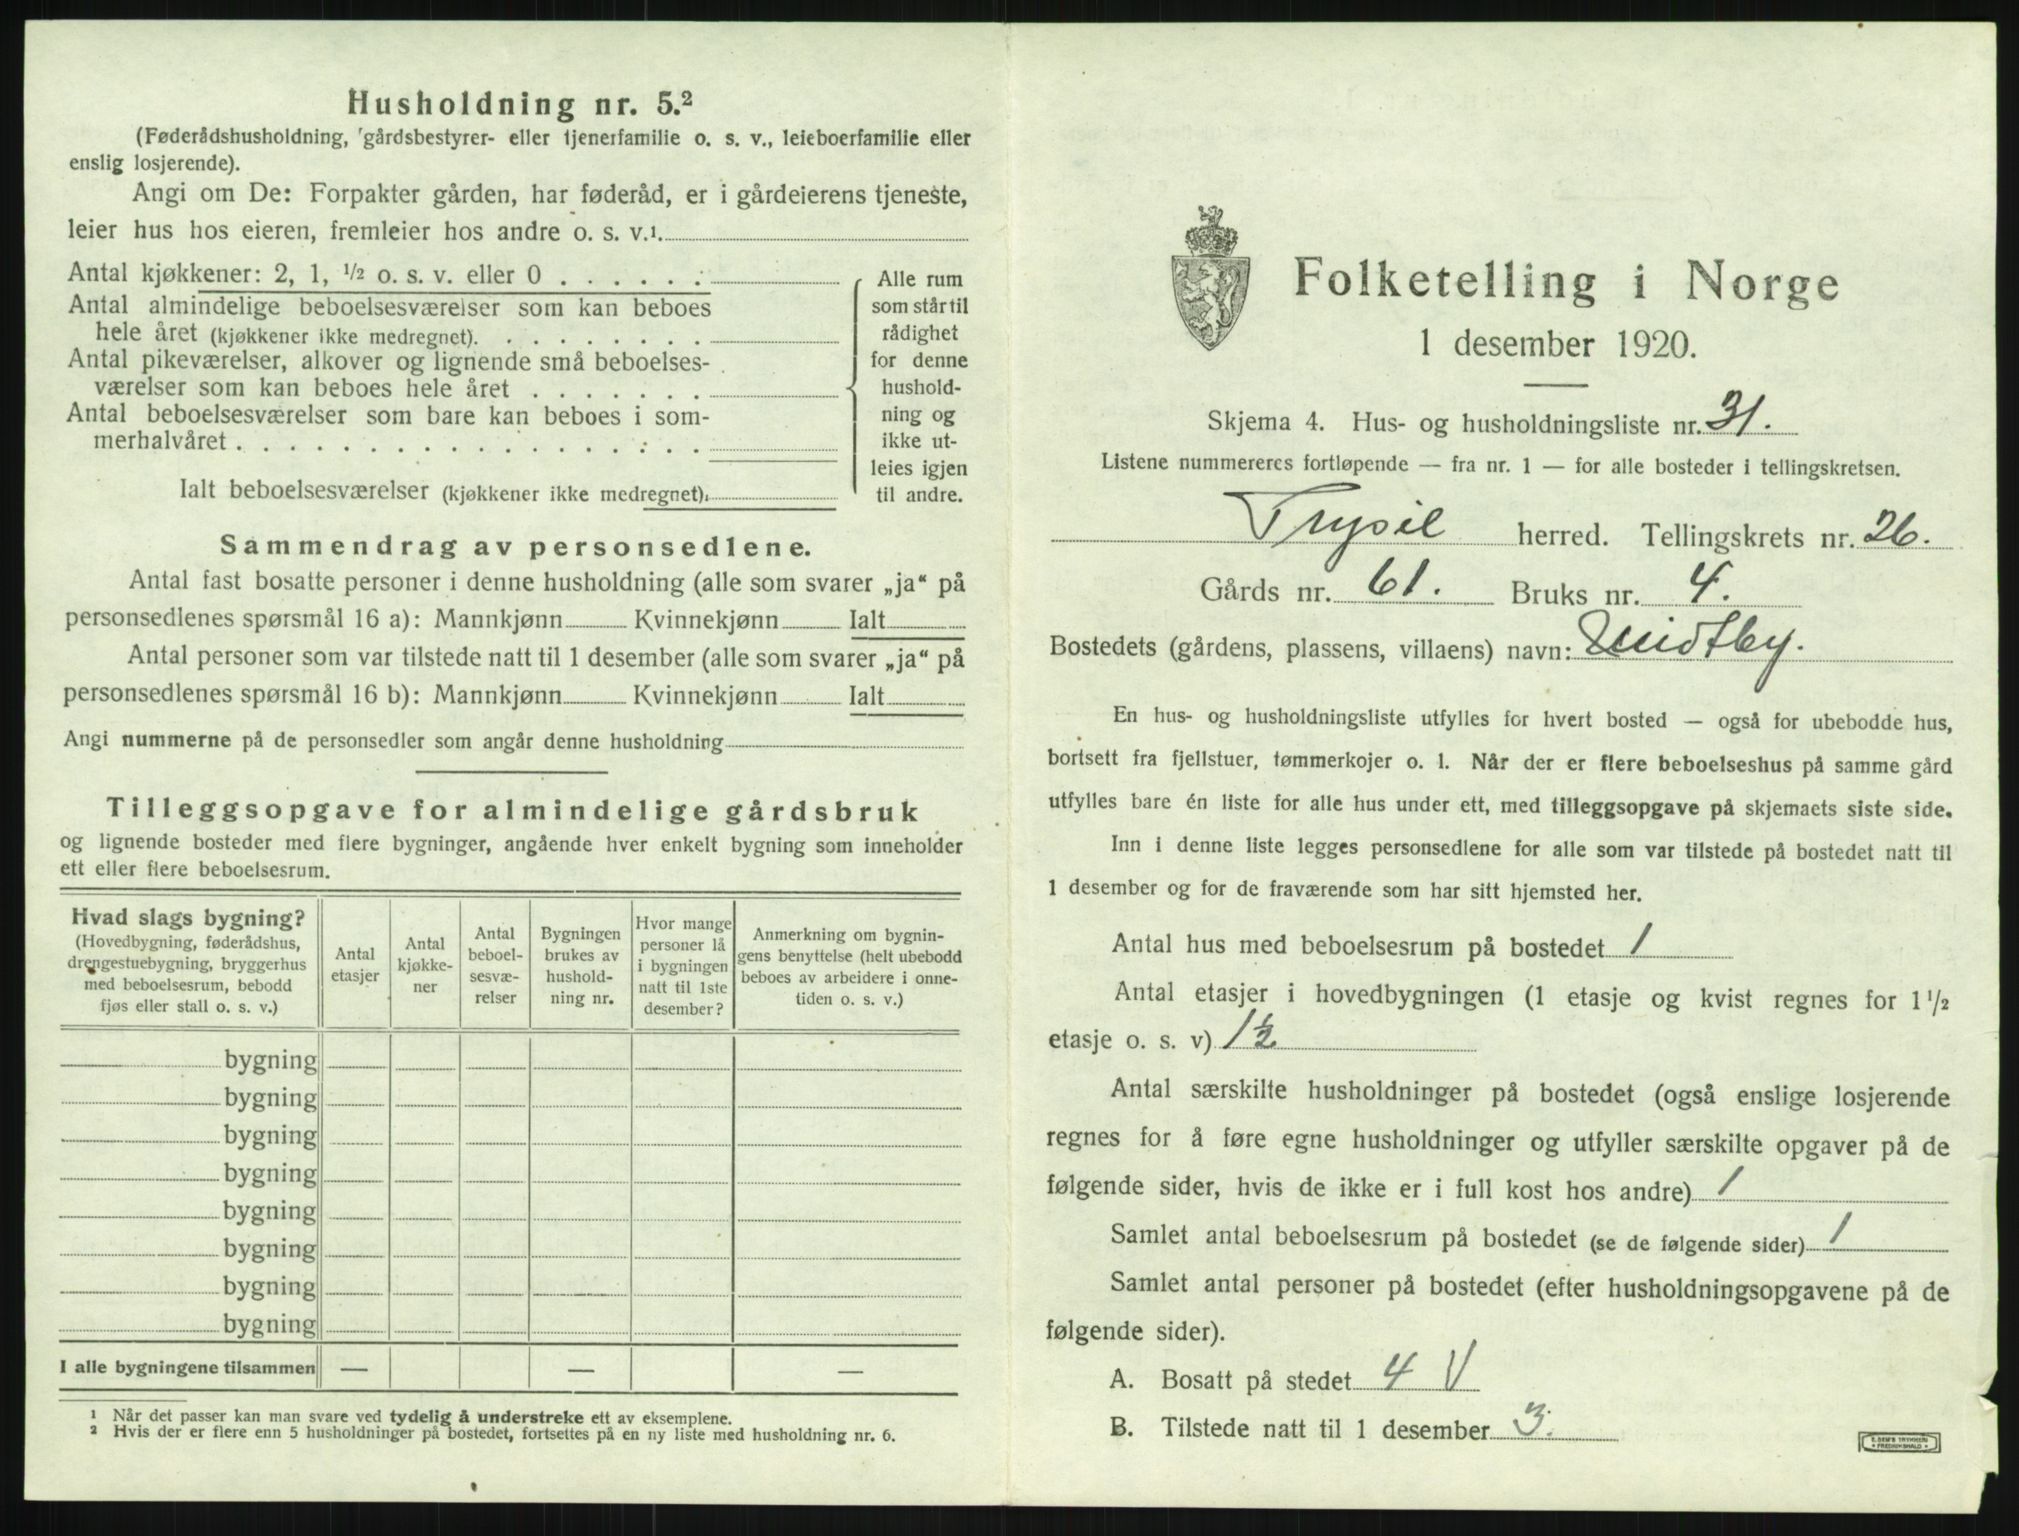 Husholdning nr. 5.²
(Føderådshusholdning, gårdsbestyrer- eller tjenerfamilie o. s. v., leieboerfamilie eller
enslig losjerende).
Angi om De: Forpakter gården, har føderåd, er i gårdeierens tjeneste,
leier hus hos eieren, fremleier hos andre o. s. v.¹.
Antal kjøkkener: 2, 1, ½ o. s. v. eller 0 . . . . . .
Antal almindelige beboelsesværelser som kan beboes
hele året (kjøkkener ikke medregnet). . . . . . . . .
Antal pikeværelser, alkover og lignende små beboelses-
værelser som kan beboes hele året . . . . . . .
Antal beboelsesværelser som bare kan beboes i som-
merhalvåret . . . . . . . . . . . . . . . . . .
Alle rum
som står til
rådighet
for denne
hushold-
ning og
ikke ut-
leies igjen
til andre.
Ialt beboelsesværelser (kjøkkener ikke medregnet).
Sammendrag av personsedlene.
Antal fast bosatte personer i denne husholdning (alle som svarer „ja“ på
personsedlenes spørsmål 16 a): Mannkjønn Kvinnekjønn Ialt
Antal personer som var tilstede natt til 1 desember (alle som svarer „ja“ på
personsedlenes spørsmål 16 b): Mannkjønn Kvinnekjønn Ialt
Angi nummerne på de personsedler som angår denne husholdning
Tilleggsopgave for almindelige gårdsbruk
og lignende bosteder med flere bygninger, angående hver enkelt bygning som inneholder
ett eller flere beboelsesrum.
Hvad slags bygning?
(Hovedbygning, føderådshus,
drengestuebygning, bryggerhus
med beboelsesrum, bebodd
fjøs eller stall o. s. v.)
Antal
etasjer
Antal
kjøkke-
ner
Antal
beboel-
sesvæ-
relser
Bygningen
brukes av
hushold-
ning nr.
Hvor mange
personer lå
i bygningen
natt til 1ste
desember?
Anmerkning om bygnin-
gens benyttelse (helt ubebodd
beboes av arbeidere i onne-
tiden o. s. v.)
bygning
bygning
bygning
bygning
bygning
bygning
bygning
bygning
I alle bygningene tilsammen — — —
¹ Når det passer kan man svare ved tydelig å understreke ett av eksemplene.
² Hvis der er flere enn 5 husholdninger på bostedet, fortsettes på en ny liste med husholdning nr. 6.
Folketelling i Norge
1 desember 1920.
Skjema 4. Hus- og husholdningsliste nr. 31.
Listene nummereres fortløpende — fra nr. 1 — for alle bosteder i tellingskretsen.
Trysil herred. Tellingskrets nr. 26.
Gårds nr. 61. Bruks nr. 4.
Bostedets (gårdens, plassens, villaens) navn:
En hus- og husholdningsliste utfylles for hvert bosted — også for ubebodde hus,
bortsett fra fjellstuer, tømmerkojer o. l. Når der er flere beboelseshus på samme gård
utfylles bare én liste for alle hus under ett, med tilleggsopgave på skjemaets siste side.
Inn i denne liste legges personsedlene for alle som var tilstede på bostedet natt til
1 desember og for de fraværende som har sitt hjemsted her.
Antal hus med beboelsesrum på bostedet 1
Antal etasjer i hovedbygningen (1 etasje og kvist regnes for 1 ½
etasje o. s. v) 1½
Antal særskilte husholdninger på bostedet (også enslige losjerende
regnes for å føre egne husholdninger og utfyller særskilte opgaver på de
følgende sider, hvis de ikke er i full kost hos andre) 1
Samlet antal beboelsesrum på bostedet (se de følgende sider) 1
Samlet antal personer på bostedet (efter husholdningsopgavene på de
følgende sider).
A. Bosatt på stedet 4 V
B. Tilstede natt til 1 desember 3.